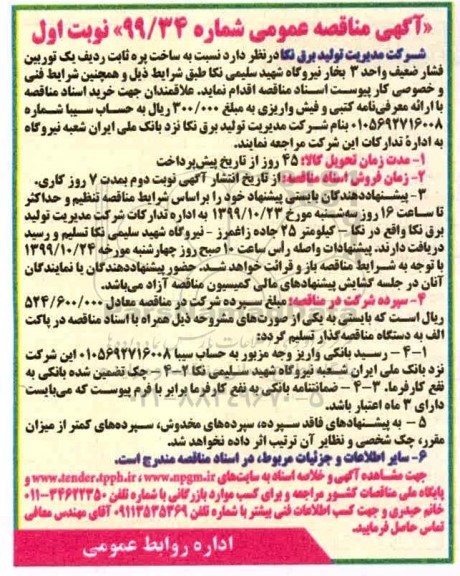 «آگهی مناقصه عمومی شماره ۹۹/۳۴» نوبت اول
شرکت مدیریت تولید برق نکا در نظر دارد نسبت به ساخت پره ثابت ردیف یک توربین
فشار ضعیف واحد ۳ بخار نیروگاه شهید سلیمی نکا طبق شرایط ذیل و همچنین شرایط فنی
و خصوصی کار پیوست اسناد مناقصه اقدام نماید. علاقمندان جهت خرید اسناد مناقصه
با ارائه معرفی‌نامه کتبی و فیش واریزی به مبلغ ۳۰۰/۰۰۰ ریال به حساب سیبا شماره
۰۱۰۵۶۹۲۷۱۶۰۰۸ بنام شرکت مدیریت تولید برق نکا نزد بانک ملی ایران شعبه نیروگاه
به ادارهٔ تدارکات این شرکت مراجعه نمایند.
۱- مدت زمان تحویل کالا: ۴۵ روز از تاریخ پیش‌پرداخت
۲- زمان فروش اسناد مناقصه: از تاریخ انتشار آگهی نوبت دوم بمدت ۷ روز کاری.
۳- پیشنهاددهندگان بایستی پیشنهاد خود را بر اساس شرایط مناقصه تنظیم و حداکثر
تا ساعت ۱۶ روز سه‌شنبه مورخ ۱۳۹۹/۱۰/۲۳ به اداره تدارکات شرکت مدیریت تولید
برق نکا واقع در نکا - کیلومتر ۲۵ جاده زاغمرز - نیروگاه شهید سلیمی نکا تسلیم و رسید
دریافت دارند. پیشنهادات واصله رأس ساعت ۱۰ صبح روز چهارشنبه مورخه ۱۳۹۹/۱۰/۲۴
با توجه به شرایط مناقصه باز و قرائت خواهد شد. حضور پیشنهاددهندگان یا نمایندگان
آنان در جلسه گشایش پیشنهادهای مالی کمیسیون مناقصه آزاد می‌باشد.
۴- سپرده شرکت در مناقصه: مبلغ سپرده شرکت در مناقصه معادل ۵۲۴/۶۰۰/۰۰۰
ریال است که بایستی به یکی از صورت‌های مشروحه ذیل همراه با اسناد مناقصه در پاکت
الف به دستگاه مناقصه‌گذار تسلیم گردد:
۴-۱ - رسید بانکی واریز وجه مزبور به حساب سیبا ۰۱۰۵۶۹۲۷۱۶۰۰۸ این شرکت
نزد بانک ملی ایران شعبه نیروگاه شهید سلیمی نکا ۴-۲ - چک تضمین شده بانکی به
نفع کارفرما. ۴-۳ - ضمانتنامه بانکی به نفع کارفرما برابر با فرم پیوست که می‌بایست
دارای ۳ ماه اعتبار باشد.
۵ - به پیشنهادهای فاقد سپرده، سپرده‌های مخدوش، سپرده‌های کمتر از میزان
مقرر، چک شخصی و نظایر آن ترتیب اثر داده نخواهد شد.
۶- سایر اطلاعات و جزئیات مربوط، در اسناد مناقصه مندرج است.
جهت مشاهده آگهی و خلاصه اسناد به سایت‌های www.npgm.ir، www.tender.tpph.ir و
پایگاه ملی مناقصات کشور مراجعه و برای کسب موارد بازرگانی با شماره تلفن ۳۴۶۲۲۳۵۰-۰۱۱
خانم حیدری و جهت کسب اطلاعات فنی بیشتر با شماره تلفن ۰۹۱۱۳۵۳۵۳۶۹ آقای مهندس معافی
تماس حاصل فرمایید.
اداره روابط عمومی